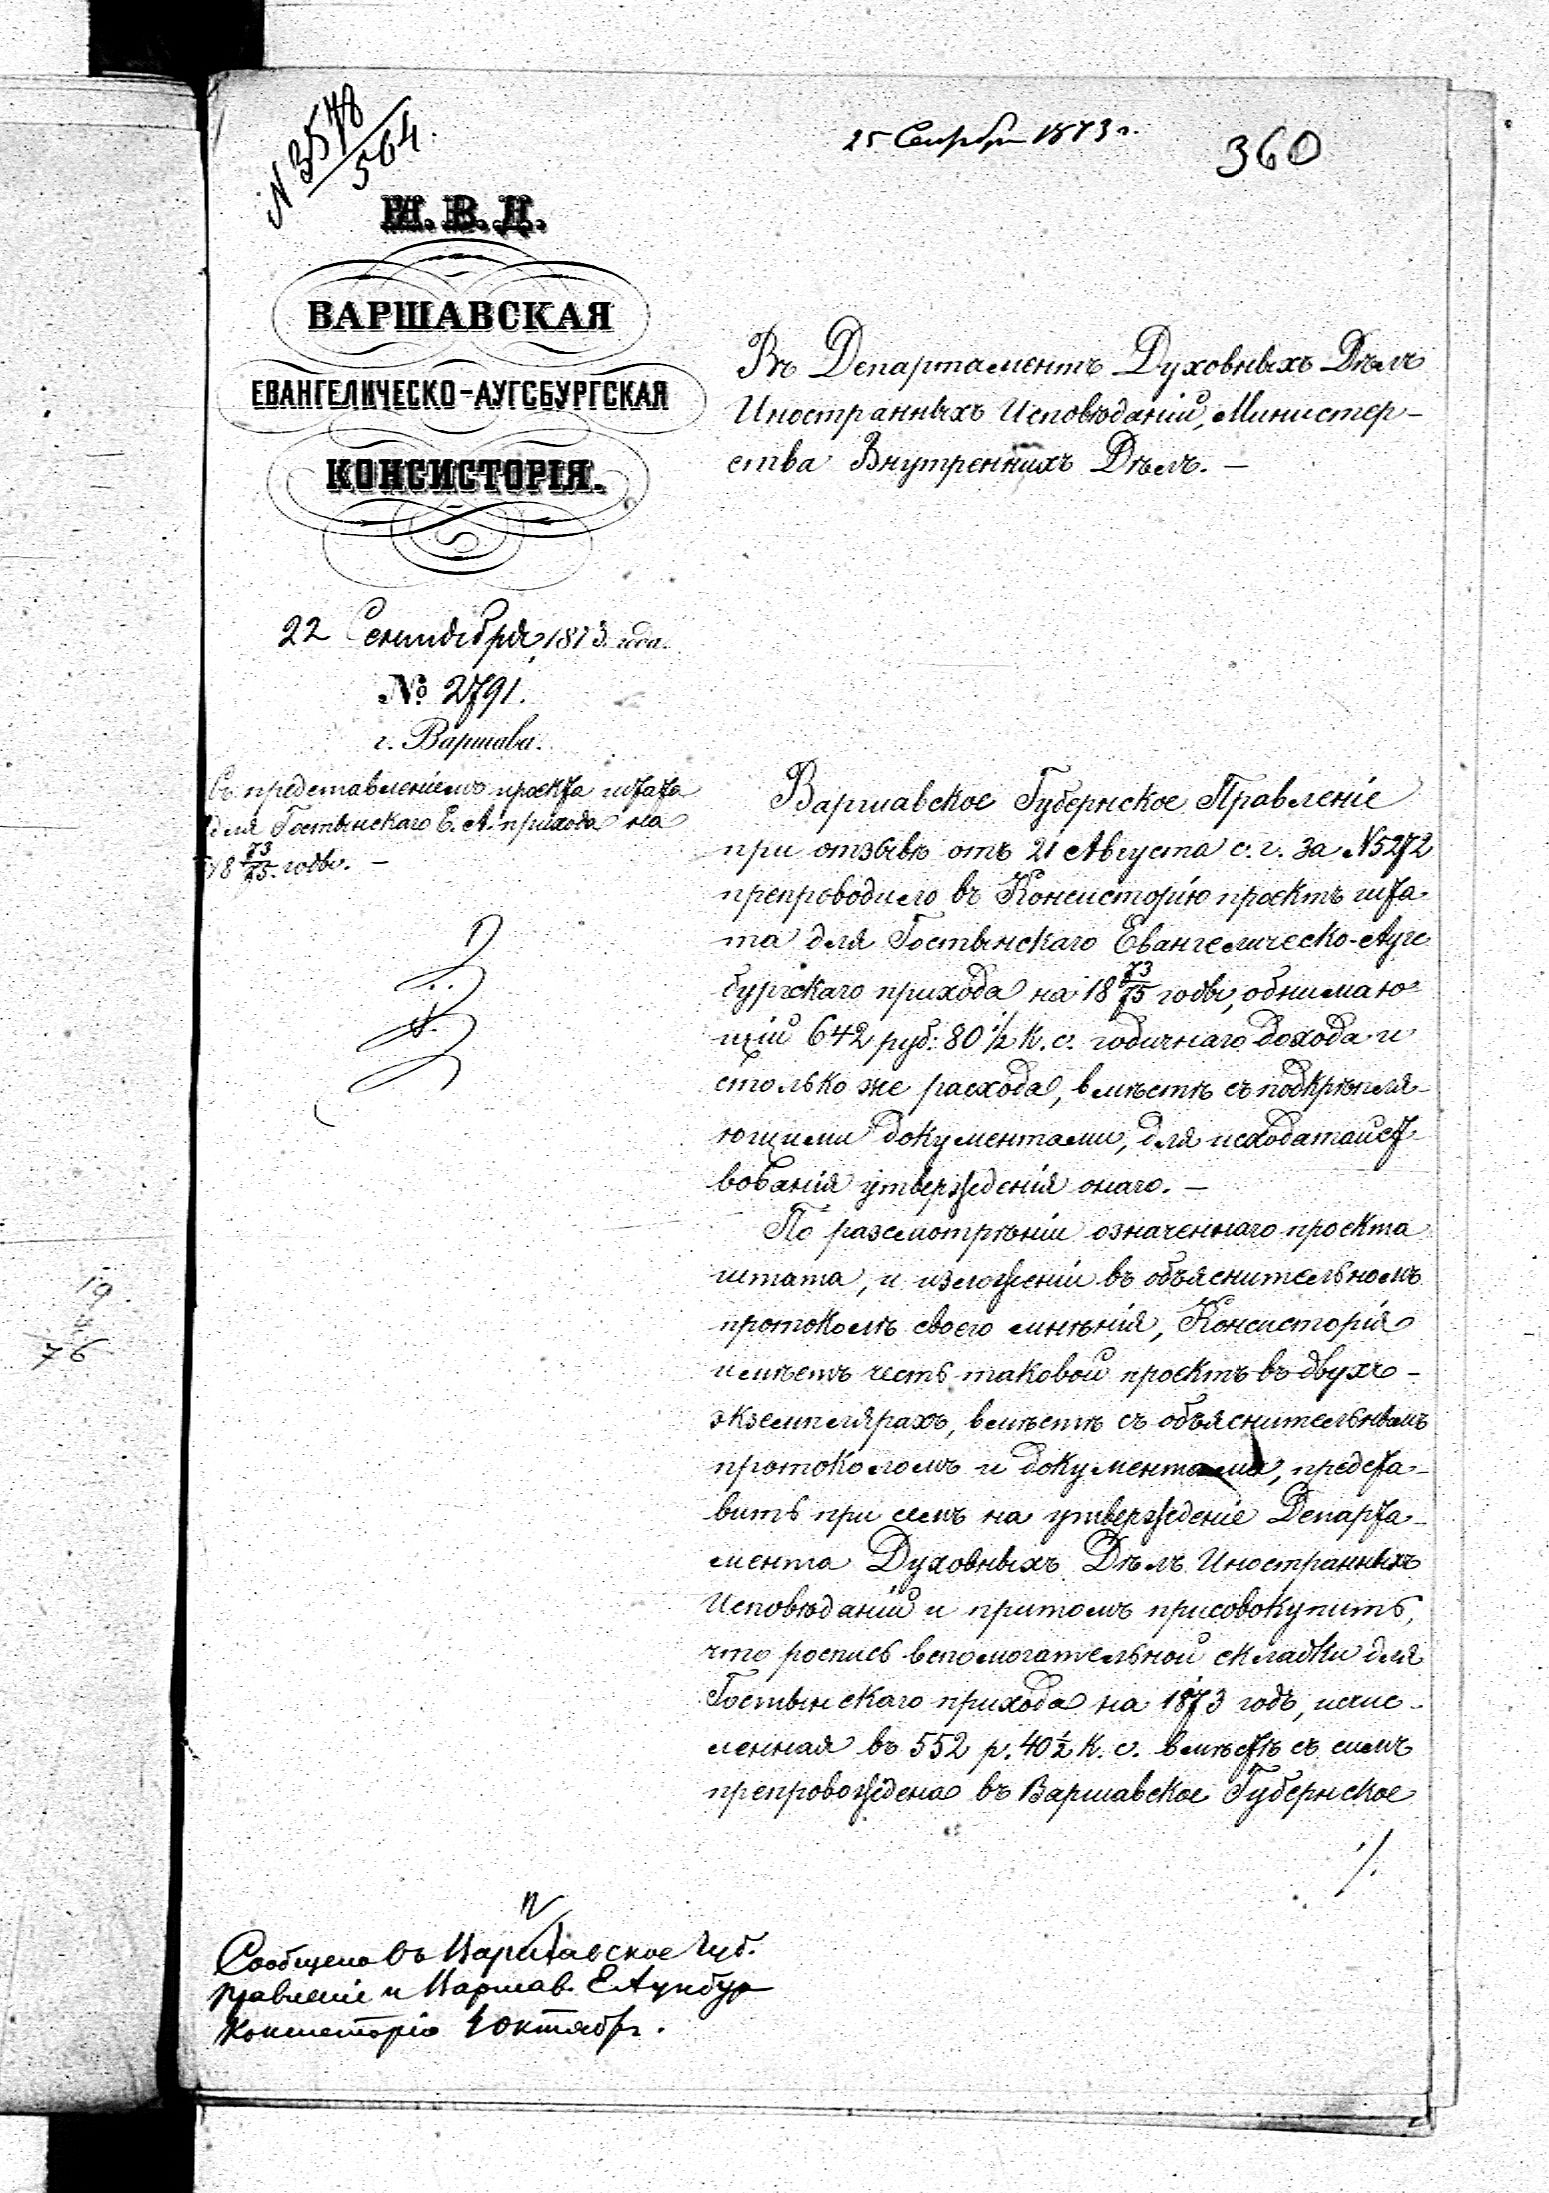 N 3578/564.
25 Сентября 1873 г.
360
М. В. Д.
ВАРШАВСКАЯ
ЕВАНГЕЛИЧЕСКО-АУГСБУРГСКАЯ
КОНСИСТОРІЯ.
22 Сентября 1873 года.
№ 2791.
г. Варшава.
Съ представленіемъ проекта штата
для Гостынскаго Е. А. прихода на
18 73/75 годы. —
Въ Департаментъ Духовныхъ Дѣлъ
Иностранныхъ Исповѣданій, Министер-
ства Внутреннихъ Дѣлъ. —
Варшавское Губернское Правленіе
при отзывѣ отъ 21 Августа с. г. за N 5272
препроводило въ Консисторію проектъ шта-
та для Гостынскаго Евангелическо-Аугс
бургскаго прихода на 18 73/75 годы, обнимаю-
щій 642 руб: 80 1/2 к. с. годичнаго дохода и
столько же расхода, вмѣстѣ съ подкрѣпля-
ющими документами, для исходатайст-
вованія утвержденія онаго. —
По разсмотрѣніи означеннаго проекта
штата, и изложеніи въ объяснительномъ
протоколѣ своего мнѣнія, Консисторія
имѣетъ честь таковой проектъ въ двухъ-
экземплярахъ, вмѣстѣ съ объяснительнымъ
протоколомъ и документами, предста-
вить при семъ на утвержденіе Департа-
мента Духовныхъ Дѣлъ Иностранныхъ
Исповѣданій и притомъ присовокупить,
что роспись вспомогательной складки для
Гостынскаго прихода на 1873 годъ, исчис-
ленная въ 552 р. 40 1/2 к. с. вмѣстѣ съ симъ
препровождена въ Варшавское Губернское
./.
Сообщено въ Варшавское Губ.
правленіе и Варшав. Е Аугсбур
Консисторію 1 Октября.
19
76